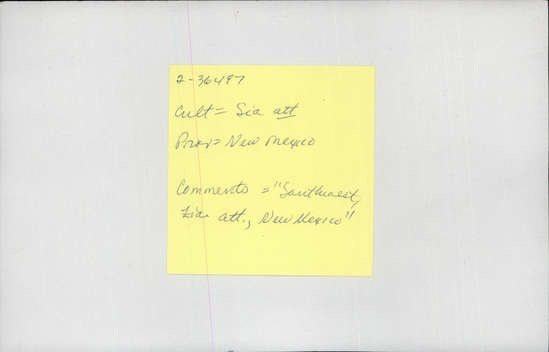 2-36497
Cult = Sia att
Prov = New Mexico
Comments = "Southwest,
Zia att., New Mexico"